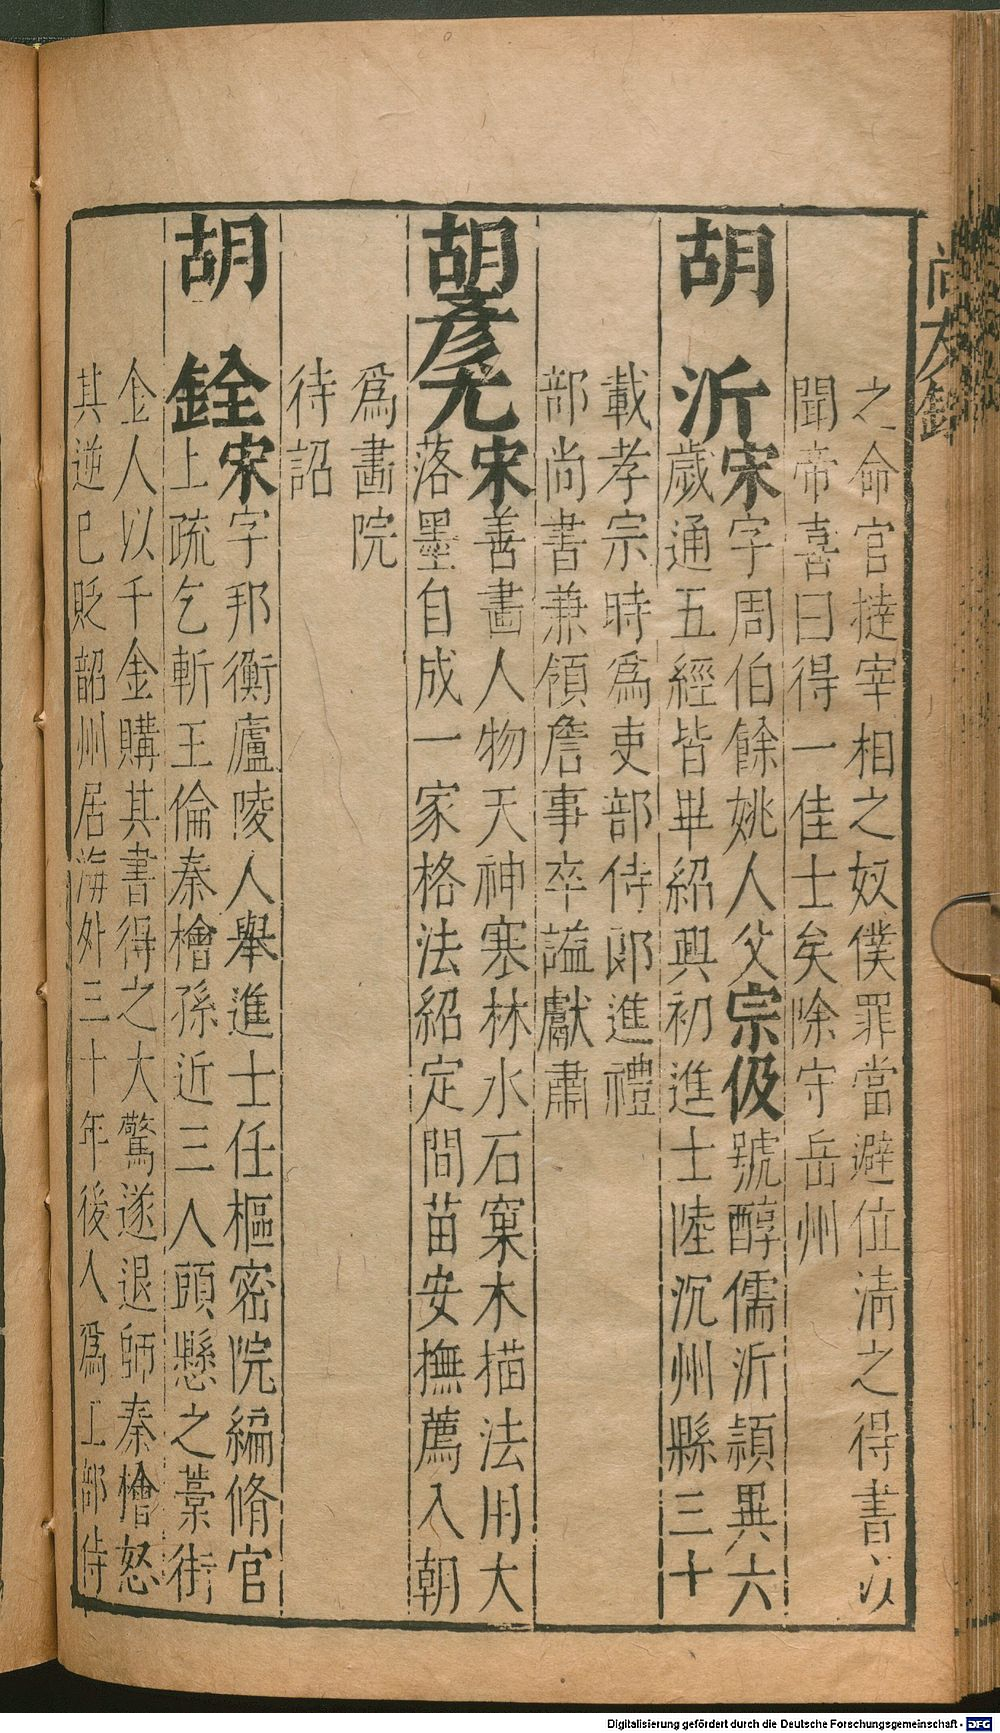 尚友錄
之命官撻宰相之奴僕罪當避位淸之得書以
聞帝喜曰得一佳士矣除守岳州
胡沂宋字周伯餘姚人父宗伋號醇儒沂穎異六
歲通五經皆畢紹興初進士陸沉州縣三十
載孝宗時爲吏部侍郎進禮
部尚書兼領詹事卒謚獻肅
胡彥尤宋善畵人物天神寒林水石窠木描法用大
落墨自成一家格法紹定間苗安撫薦入朝
爲畵院
待詔
胡銓宋字邦衡廬陵人舉進士任樞密院編脩官
上疏乞斬王倫秦檜孫近三人頭懸之藁街
金人以千金購其書得之大驚遂退師秦檜怒
其逆已貶韶州居海外三十年後人爲工部侍
Digitalisierung gefördert durch die Deutsche Forschungsgemeinschaft - DFG